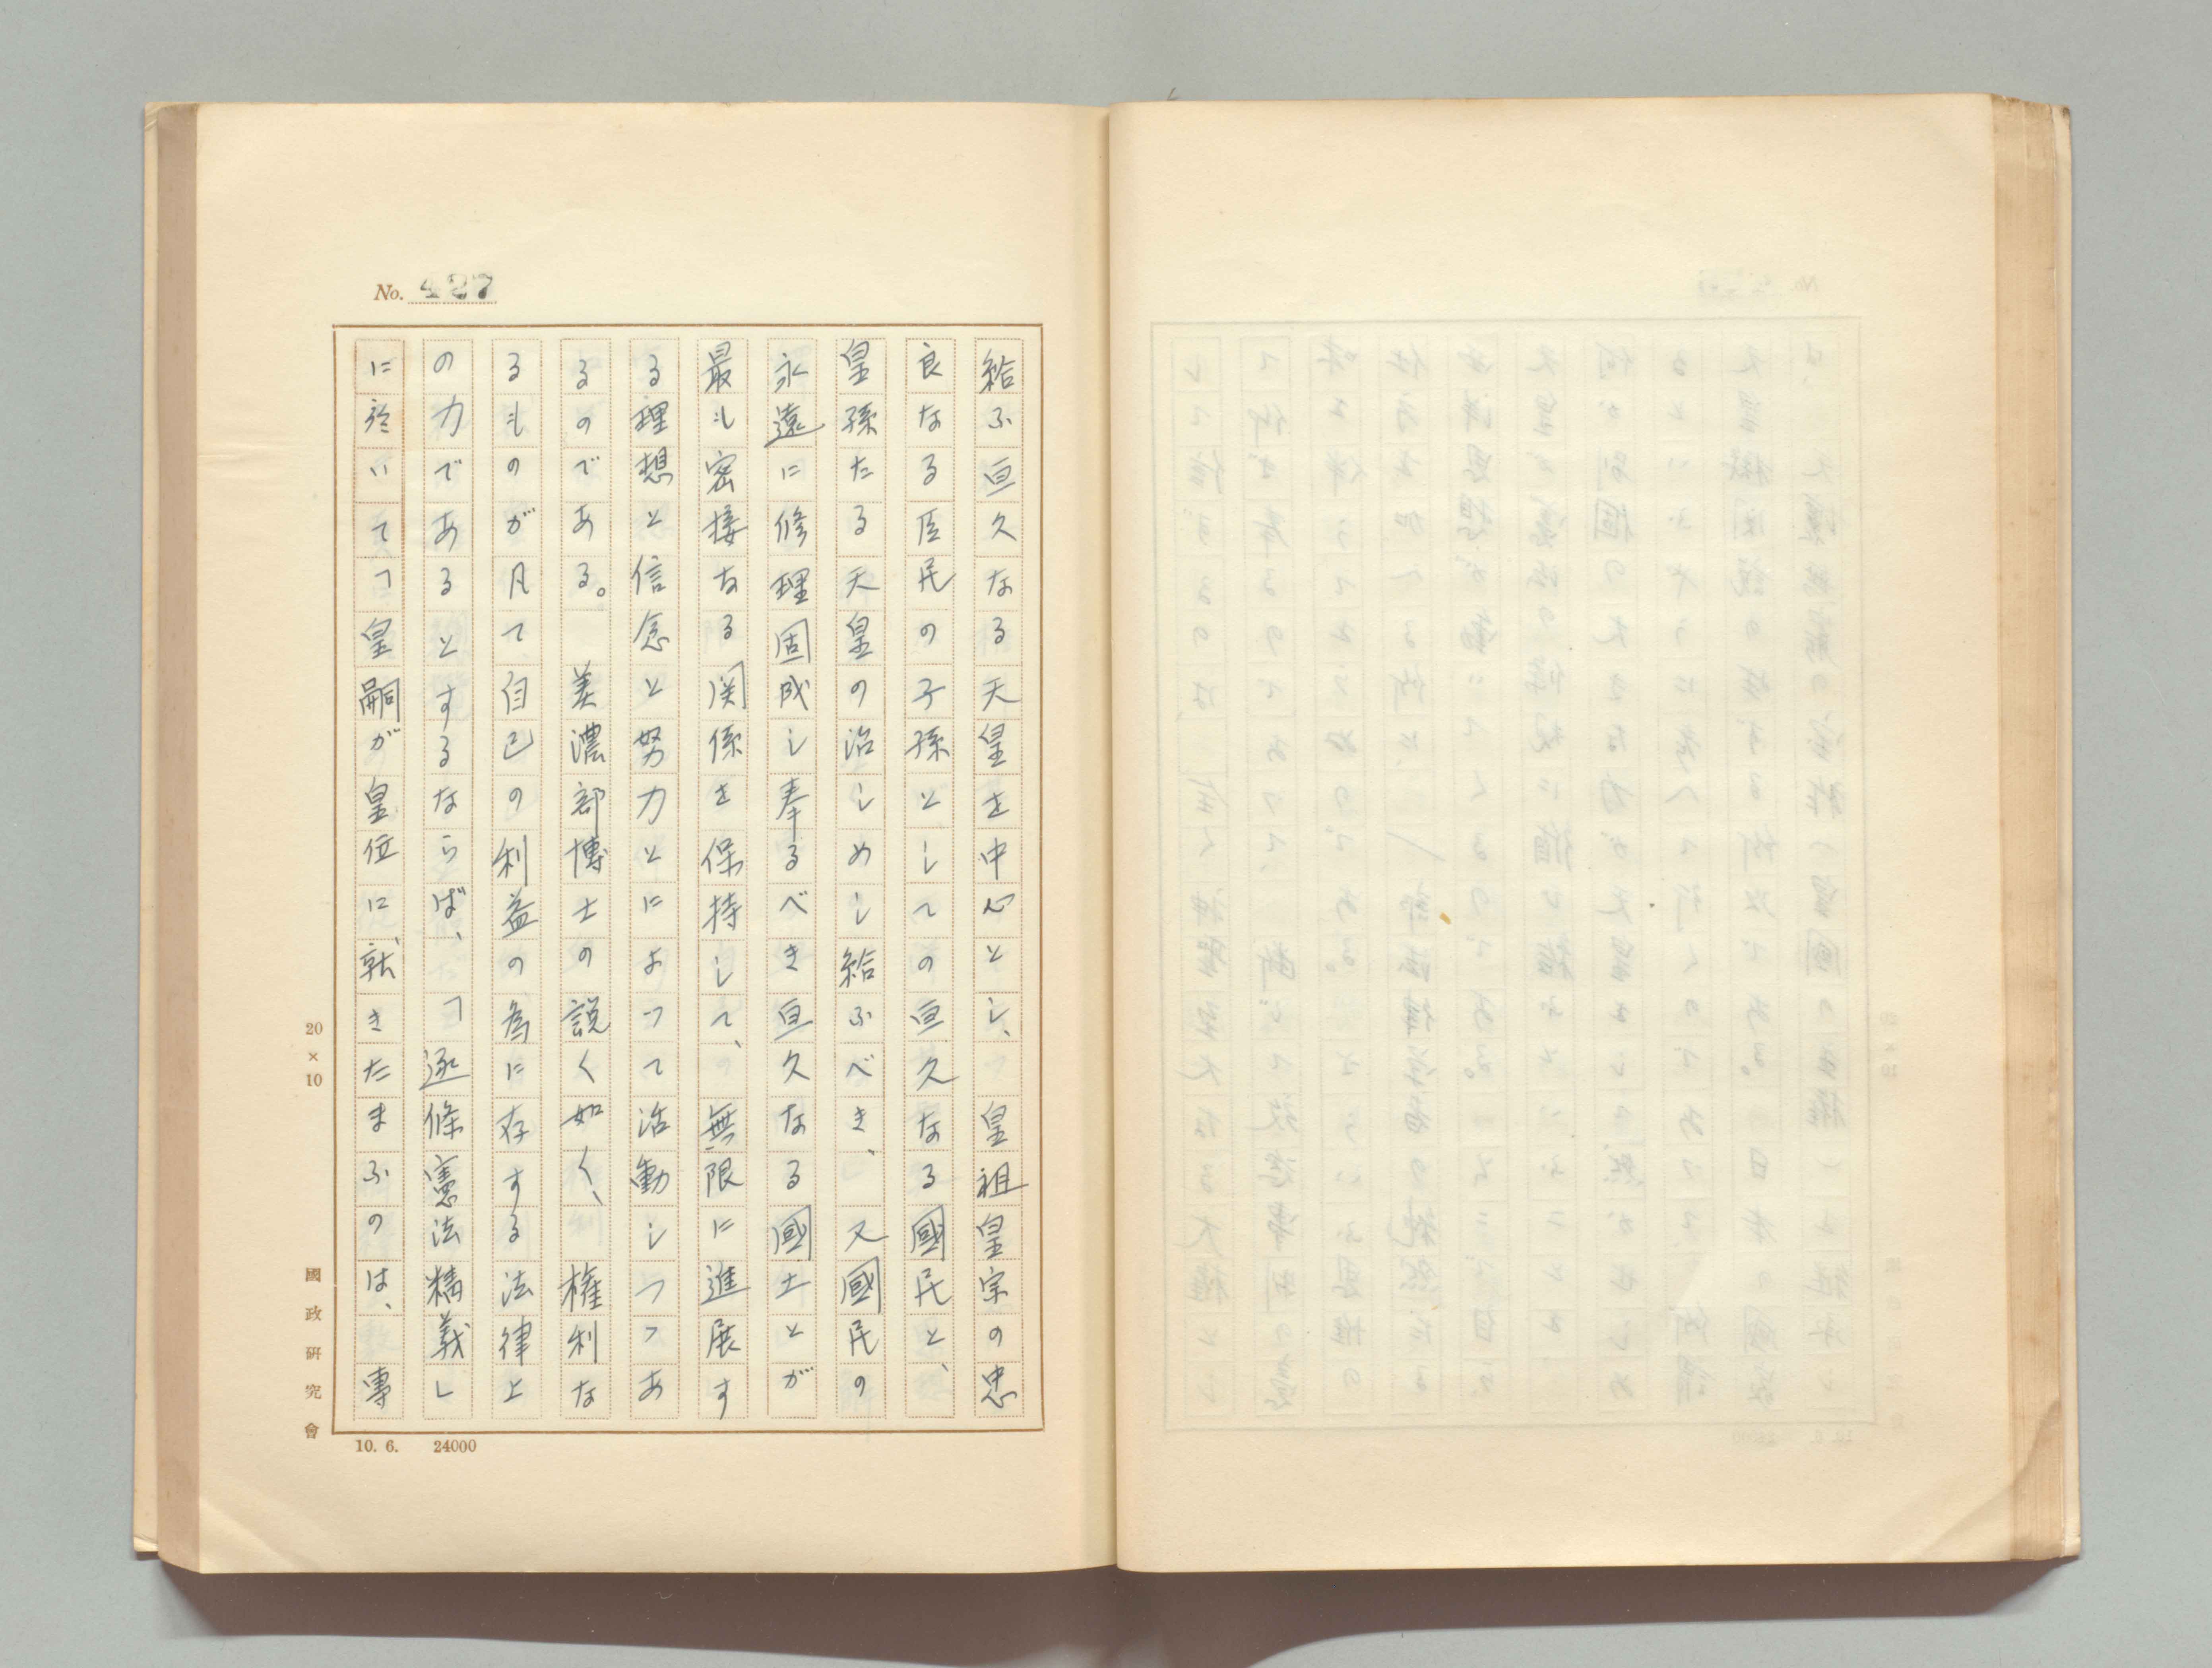 No. 427
給ふ亘久なる天皇を中心とし、皇祖皇宗の忠
良なる臣民の子孫としての亘久なる國民と、
皇孫たる天皇の治しめし給ふべき、又國民の
永遠に修理固成し奉るべき亘久なる國土とが
最も密接なる関係を保持して、無限に進展す
る理想と信念と努力とによつて活動しつつあ
るのである。 美濃部博士の説く如く、権利な
るものが凡て自己の利益の為に存する法律上
の力であるとするならば、「逐條憲法精義」
に於いて「皇嗣が皇位に就きたまふのは、專
20×10
國政研究會
10. 6. 24000